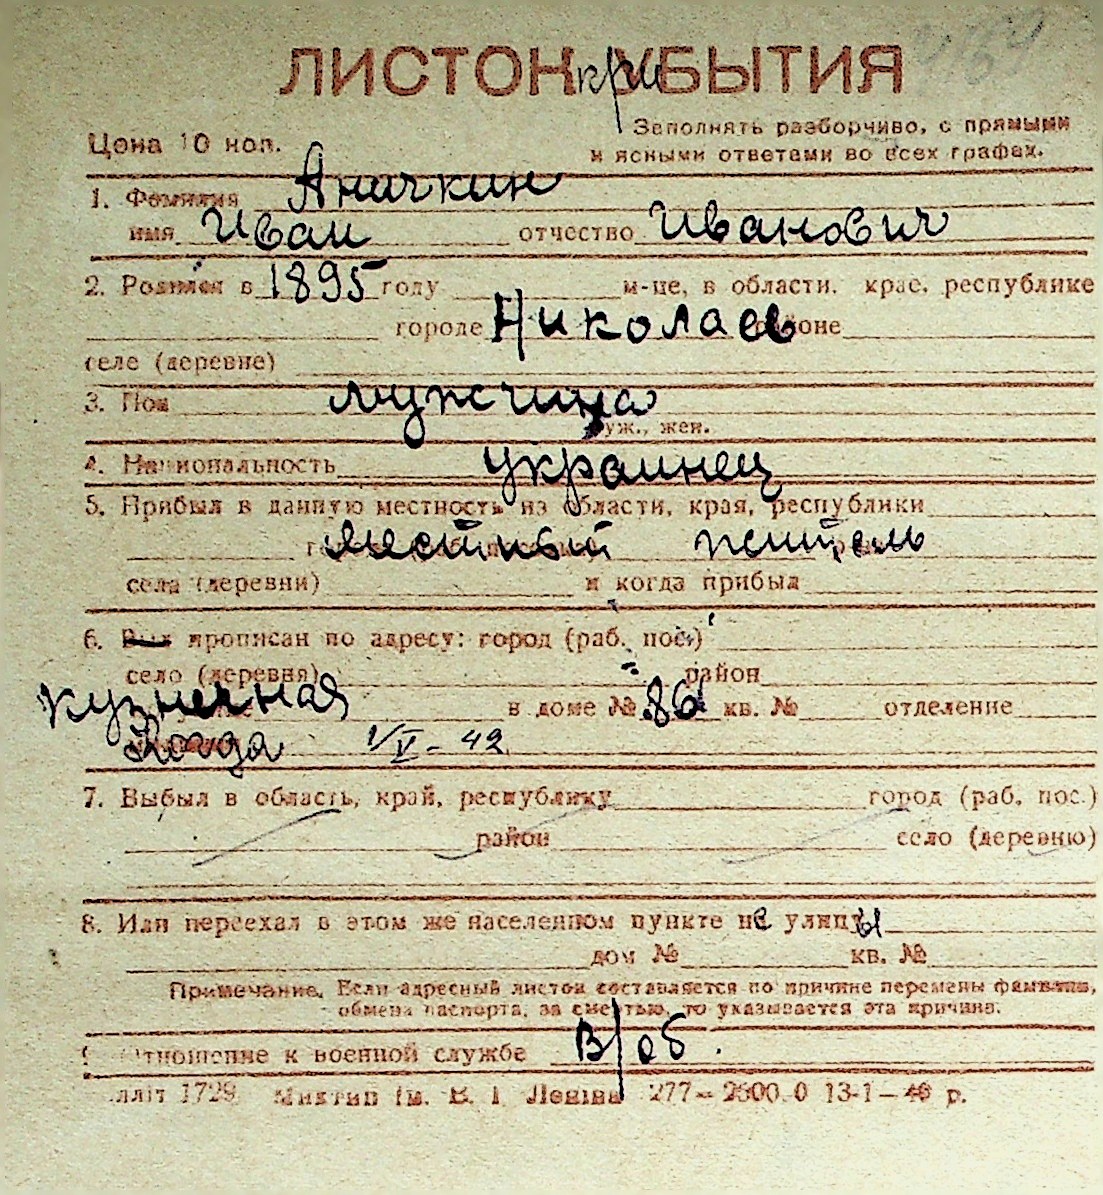 ЛИСТОК при УБЫТИЯ
Цена 10 коп.
Заполнять разборчиво, с прямыми
и ясными ответами во всех графах.
1. Фамилия Аничкин
имя Иван отчество Иванович
2. Родился в 1895 году м-це, в области, крае, республике
городе Николаев районе
селе (деревне)
3. Пол мужчина
муж., жен.
4. Национальность украинец
5. Прибыл в данную местность из области, края, республики
местный житель
села (деревни) и когда прибыл
6. Был прописан по адресу: город (раб. пос.)
село (деревня) район
Кузнечная в доме № 86 кв. № отделение
Когда 1/V - 42
7. Выбыл в область, край, республику город (раб. пос.)
район село (деревню)
8. Или переехал в этом же населенном пункте не улицы
дом № кв. №
Примечание. Если адресный листок составляется по причине перемены фамилии,
обмена паспорта, за смертью, то указывается эта причина.
9. Отношение к военной службе в/об.
лліт 1729 Миктип ім. В. І. Леніна 277—2600.0 13-1—40 р.